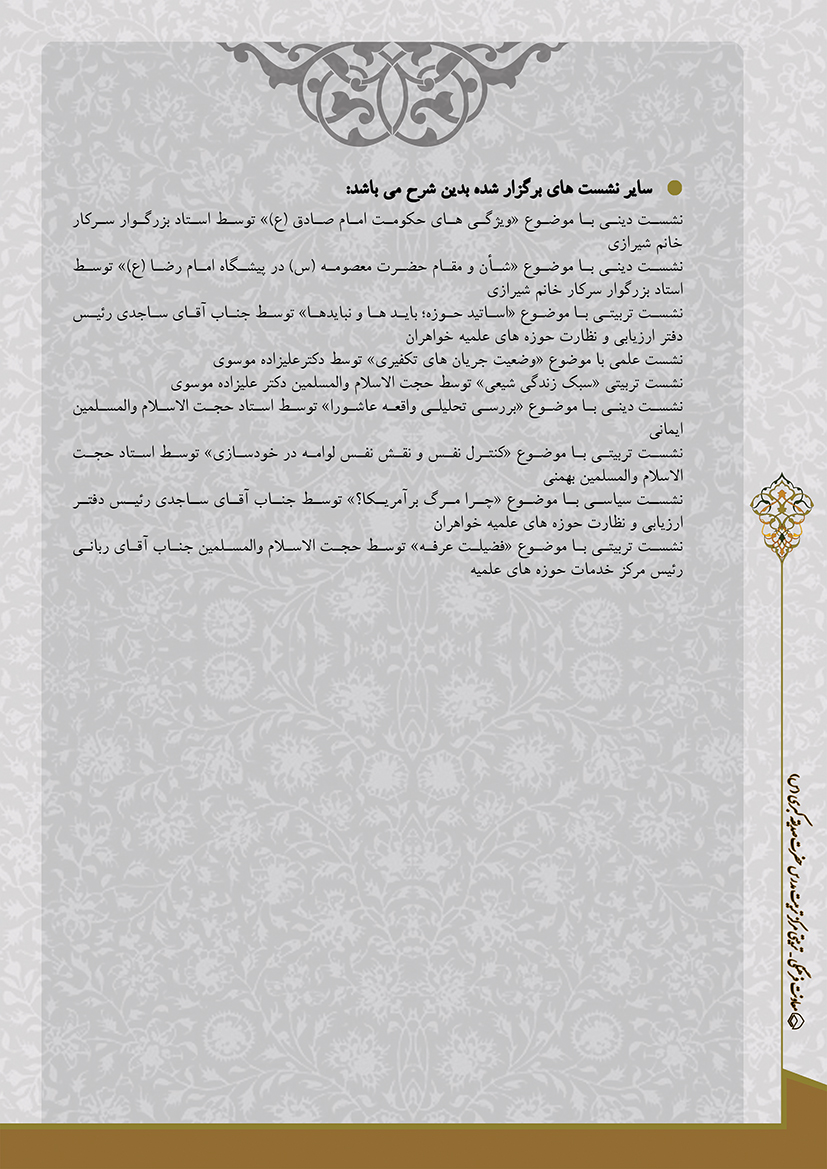 سایر نشست های برگزار شده بدین شرح می باشد:
نشست دینی با موضوع «ویژگی های حکومت امام صادق (ع)» توسط استاد بزرگوار سرکار
خانم شیرازی
نشست دینی با موضوع «شأن و مقام حضرت معصومه (س) در پیشگاه امام رضا (ع)» توسط
استاد بزرگوار سرکار خانم شیرازی
نشست تربیتی با موضوع «اساتید حوزه؛ باید ها و نبایدها» توسط جناب آقای ساجدی رئیس
دفتر ارزیابی و نظارت حوزه های علمیه خواهران
نشست علمی با موضوع «وضعیت جریان های تکفیری» توسط دکترعلیزاده موسوی
نشست تربیتی «سبک زندگی شیعی» توسط حجت الاسلام والمسلمین دکتر علیزاده موسوی
نشست دینی با موضوع «بررسی تحلیلی واقعه عاشورا» توسط استاد حجت الاسلام والمسلمین
ایمانی
نشست تربیتی با موضوع «کنترل نفس و نقش نفس لوامه در خودسازی» توسط استاد حجت
الاسلام والمسلمین بهمنی
نشست سیاسی با موضوع «چرا مرگ برآمریکا؟» توسط جناب آقای ساجدی رئیس دفتر
ارزیابی و نظارت حوزه های علمیه خواهران
نشست تربیتی با موضوع «فضیلت عرفه» توسط حجت الاسلام والمسلمین جناب آقای ربانی
رئیس مرکز خدمات حوزه های علمیه
معاونت فرهنگی - تربیتی مرکز تربیت مدرس حضرت صدیقه کبری (س)